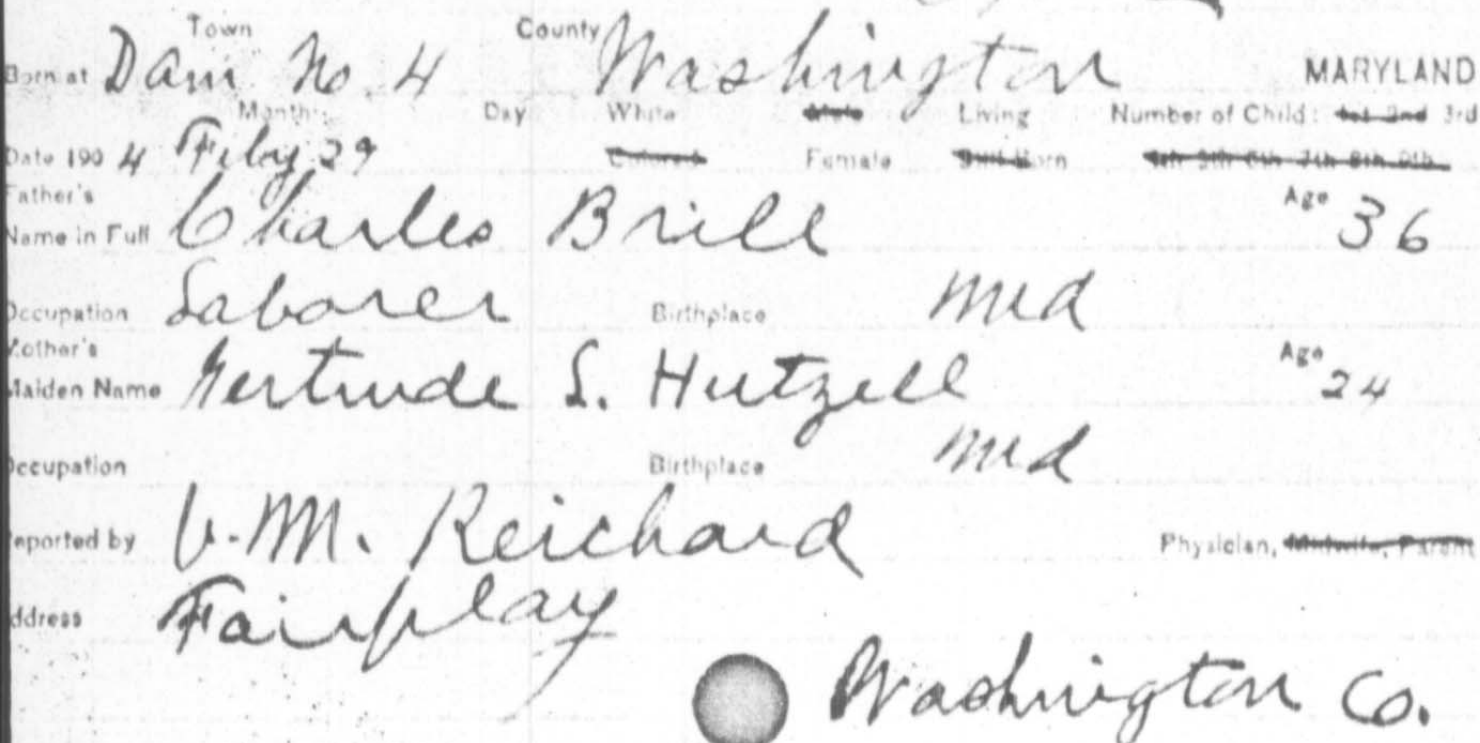 Town County
Born at Dam No. 4 Washington MARYLAND
Month Day White Male Living Number of Child: 1st 2nd 3rd
Date 190 4 Feby 29 Colored Female Still Born 4th 5th 6th 7th 8th 9th
Father's Age
Name in Full Charles Brill 36
Occupation Laborer Birthplace Md
Mother's Age
Maiden Name Gertrude S. Hutzell 24
Occupation Birthplace Md
Reported by V. M. Reichard Physician, Midwife, Parent
Address Fairplay
Washington Co.